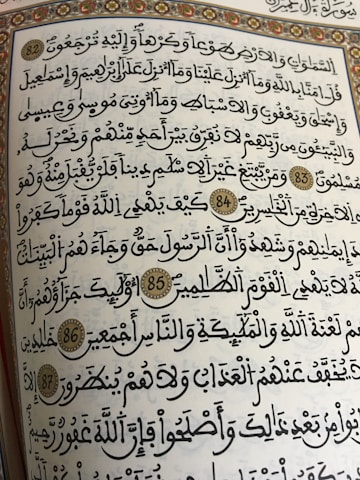 سورة آل عمران
السَّمَٰوَٰتِ وَالَارْضِ طَوْعاً وَكَرْهاً وَإِلَيْهِ تُرْجَعُونَ 82
قُلَ اٰمَنَّا بِاللَّهِ وَمَا أُنزِلَ عَلَيْنَا وَمَا أُنزِلَ عَلَىٰ إِبْرَٰهِيمَ وَإِسْمَٰعِيلَ
وَإِسْحَٰقَ وَيَعْقُوبَ وَالَاسْبَاطِ وَمَا أُوتِيَ مُوسَىٰ وَعِيسَىٰ
وَالنَّبِيٓـُٔونَ مِن رَّبِّهِمْ لَا نُفَرِّقُ بَيْنَ أَحَدٍ مِّنْهُمْ وَنَحْنُ لَهُۥ
مُسْلِمُونَ 83 وَمَنْ يَّبْتَغِ غَيْرَ اَلِاسْلَٰمِ دِيناً فَلَنْ يُّقْبَلَ مِنْهُ وَهُوَ
اَلَاخِرَةِ مِنَ اَلْخَٰسِرِينَ 84 كَيْفَ يَهْدِي اِللَّهُ قَوْماً كَفَرُوا
إِيمَٰنِهِمْ وَشَهِدُوا أَنَّ اَلرَّسُولَ حَقٌّ وَجَاءَهُمُ اُلْبَيِّنَٰتُ
لَا يَهْدِي اِلْقَوْمَ اَلظَّٰلِمِينَ 85 أُوْلَٰئِكَ جَزَاؤُهُمُ أَنَّ
لَعْنَةَ اَللَّهِ وَالْمَلَٰئِكَةِ وَالنَّاسِ أَجْمَعِينَ 86 خَٰلِدِينَ
لَا يُخَفَّفُ عَنْهُمُ اُلْعَذَابُ وَلَا هُمْ يُنظَرُونَ 87 إِلَّا
مِنۢ بَعْدِ ذَٰلِكَ وَأَصْلَحُوا فَإِنَّ اَللَّهَ غَفُورٌ رَّحِيمٌ